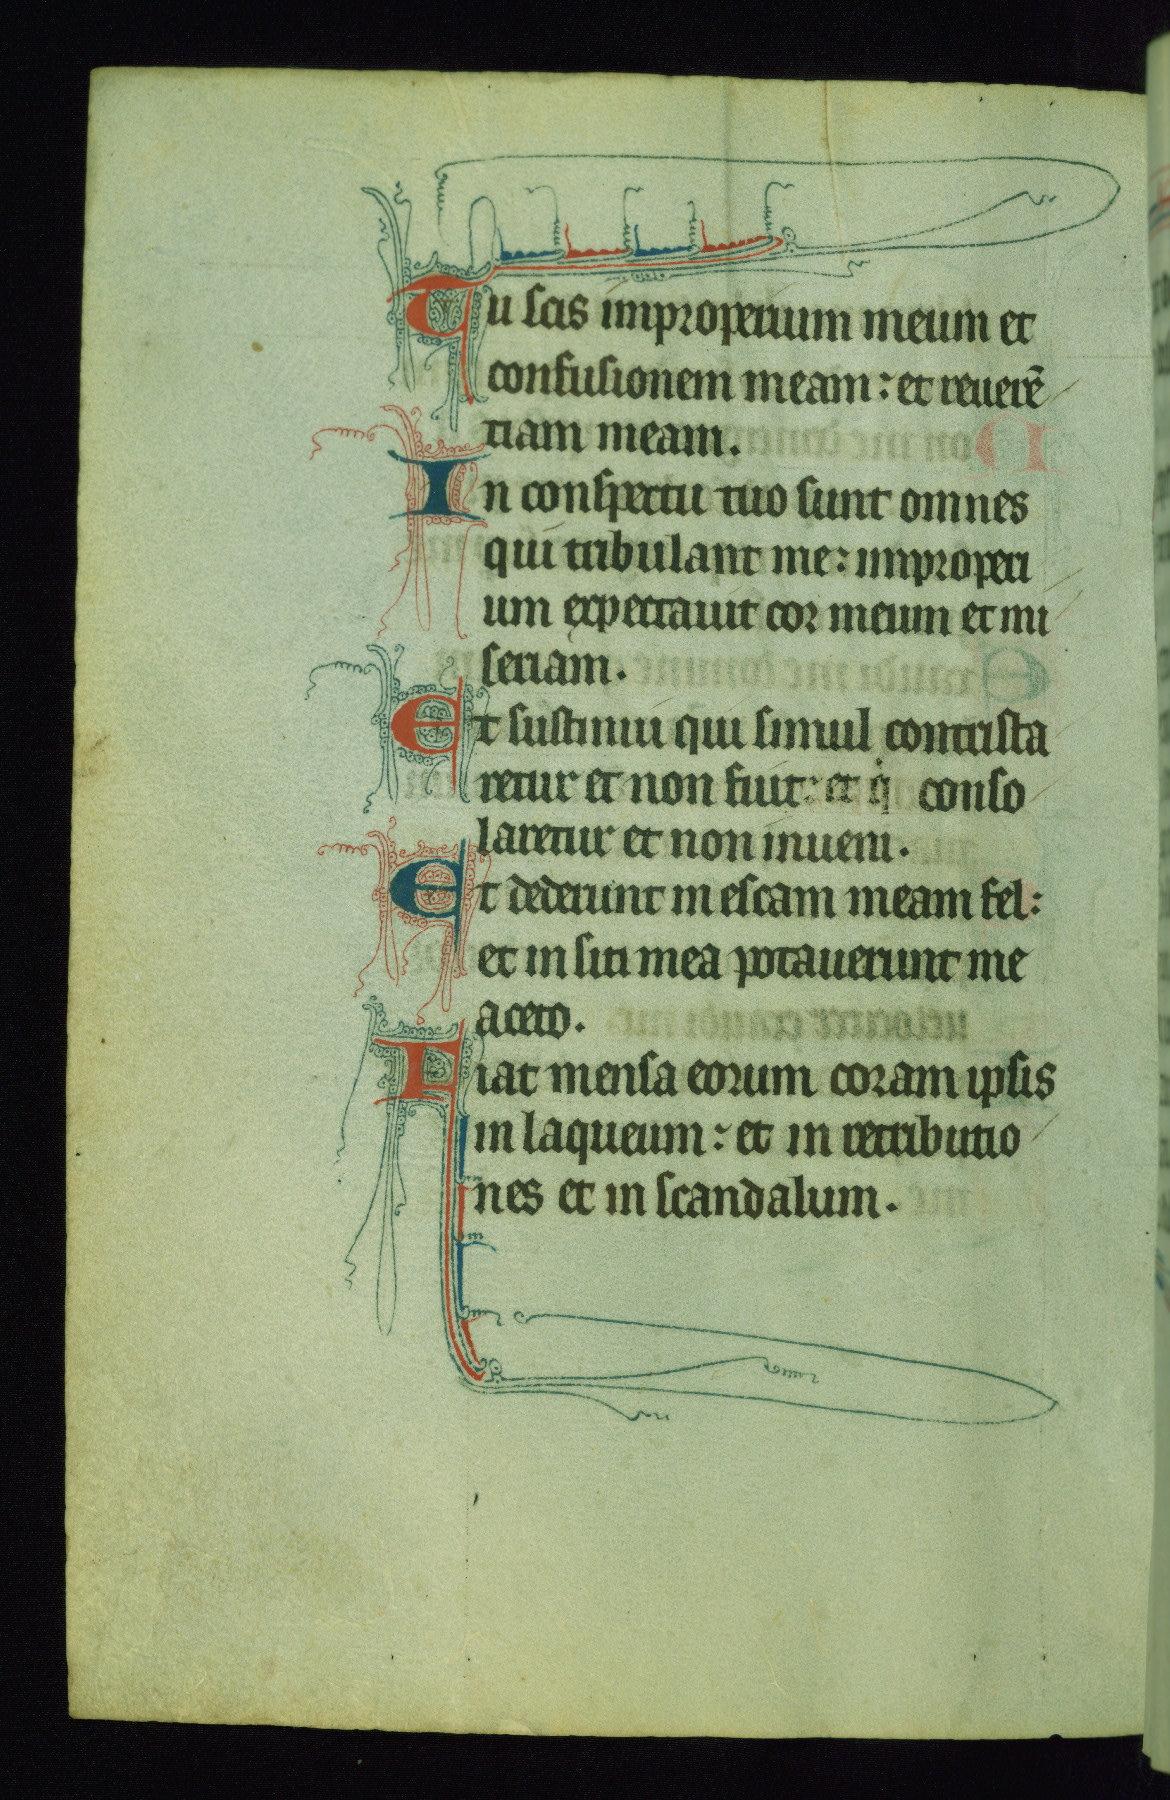 Tu scis improperium meum et
confusionem meam: et reuerē
tiam meam.
In conspectu tuo sunt omnes
qui tribulant me: improperi
um expectauit cor meum et mi
seriam.
Et sustinui qui simul contrista
retur et non fuit: et q̇ conso
laretur et non inueni.
Et dederunt in escam meam fel:
et in siti mea potauerunt me
aceto.
Fiat mensa eorum coram ipsis
in laqueum: et in retributio
nes et in scandalum.